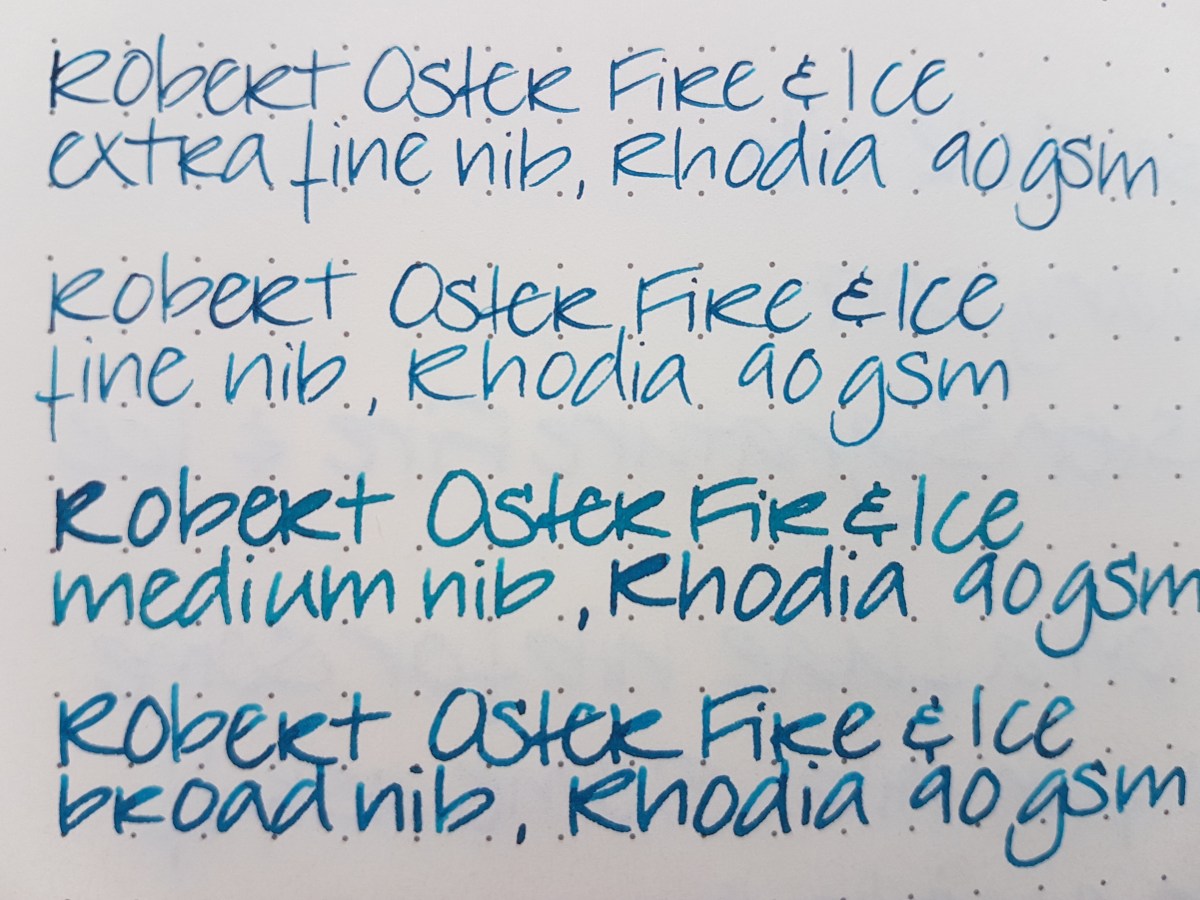 Robert Oster Fire & Ice
extra fine nib, Rhodia 90gsm
Robert Oster Fire & Ice
fine nib, Rhodia 90 gsm
Robert Oster Fir & Ice
medium nib, Rhodia 90gsm
Robert Oster Fire & Ice
broad nib, Rhodia 90 gsm